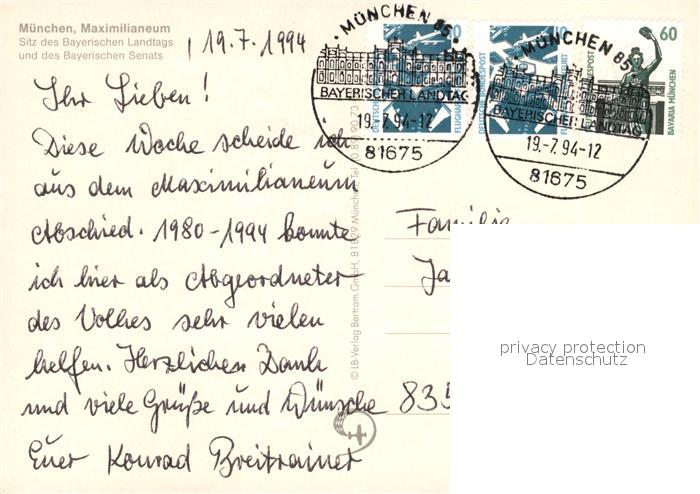 München, Maximilianeum
Sitz des Bayerischen Landtags
und des Bayerischen Senats
19.7.1994
Ihr Lieben!
Diese Woche scheide ich
aus dem Maximilianeum
Abschied. 1980-1994 konnte
ich hier als Abgeordneter
des Volkes sehr vielen
helfen. Herzlichen Dank
und viele Grüße und Wünsche
Euer Konrad Breitrainer
MÜNCHEN 85
BAYERISCHER LANDTAG
19.-7.94-12
81675
MÜNCHEN 85
BAYERISCHER LANDTAG
19.-7.94-12
81675
60
BAVARIA MÜNCHEN
© LB-Verlag Bertram GmbH, 81829 München
Familie
Ja
835
privacy protection
Datenschutz